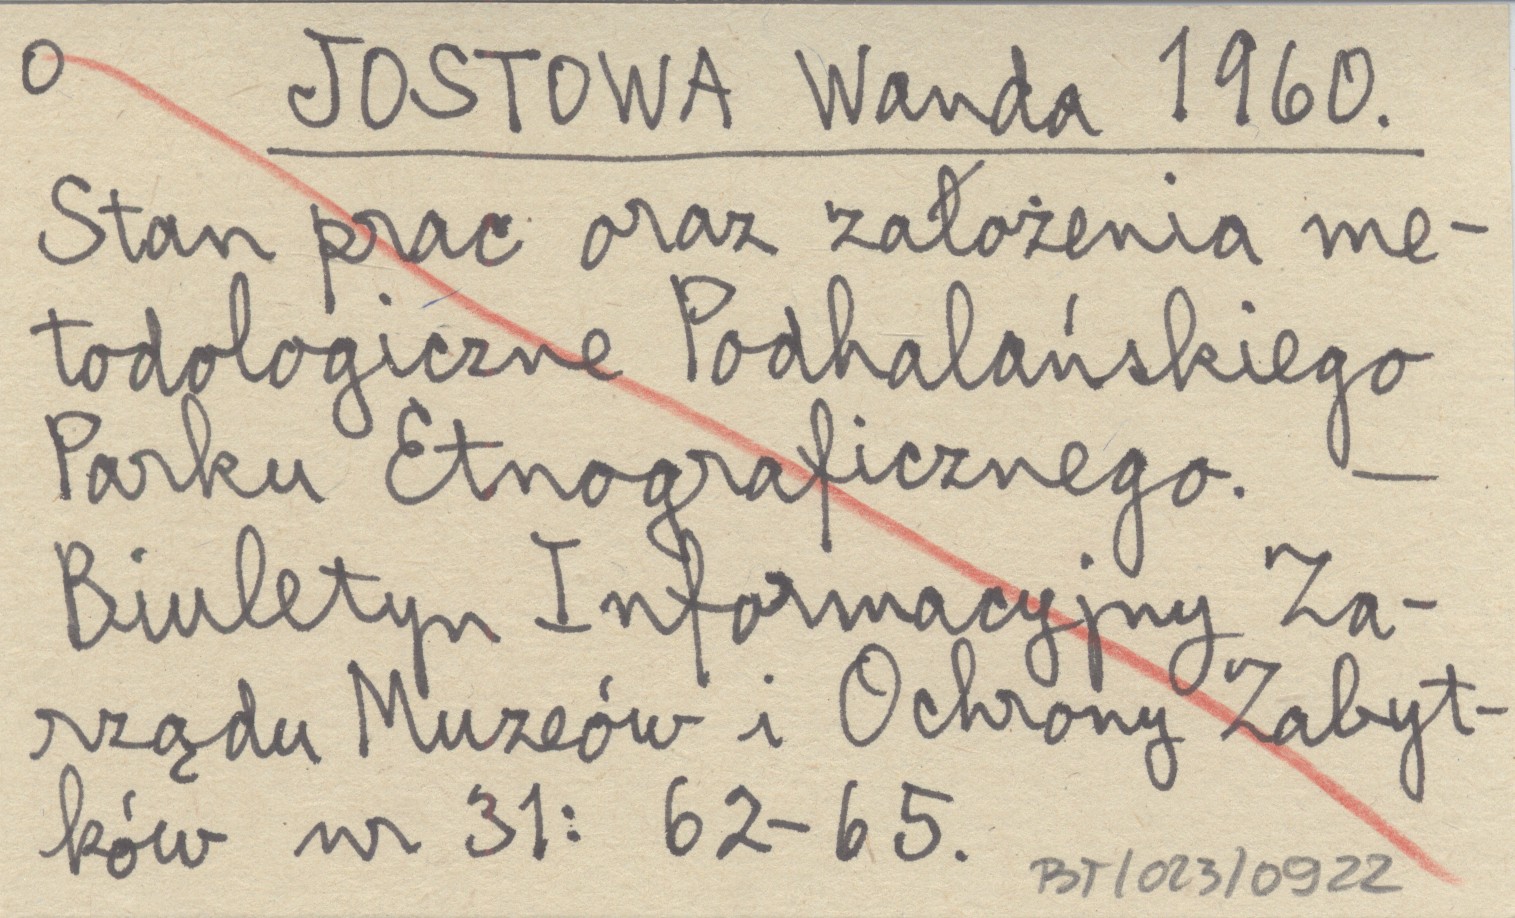 O JOSTOWA Wanda 1960.
Stan prac oraz założenia me-
todologiczne Podhalańskiego
Parku Etnograficznego. —
Biuletyn Informacyjny Za-
rządu Muzeów i Ochrony Zabyt-
ków nr 31: 62-65.
BT/023/0922